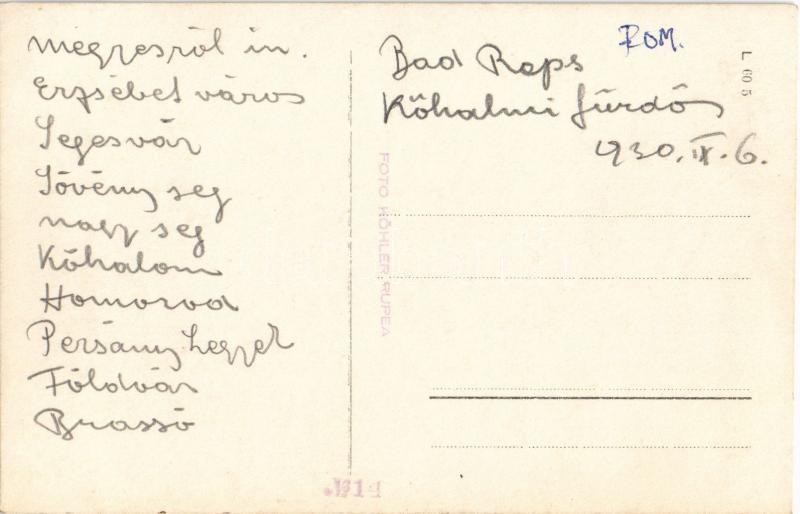 Megyesről in.
Erzsébet város
Segesvár
Sövény seg
nagy seg
Kőhalom
Homorod
Persány hegyet
Földvár
Brassó
Bad Reps
Kőhalmi fürdő
1930. IX. 6.
ROM.
L 60 5
FOTO KÖHLER RUPEA